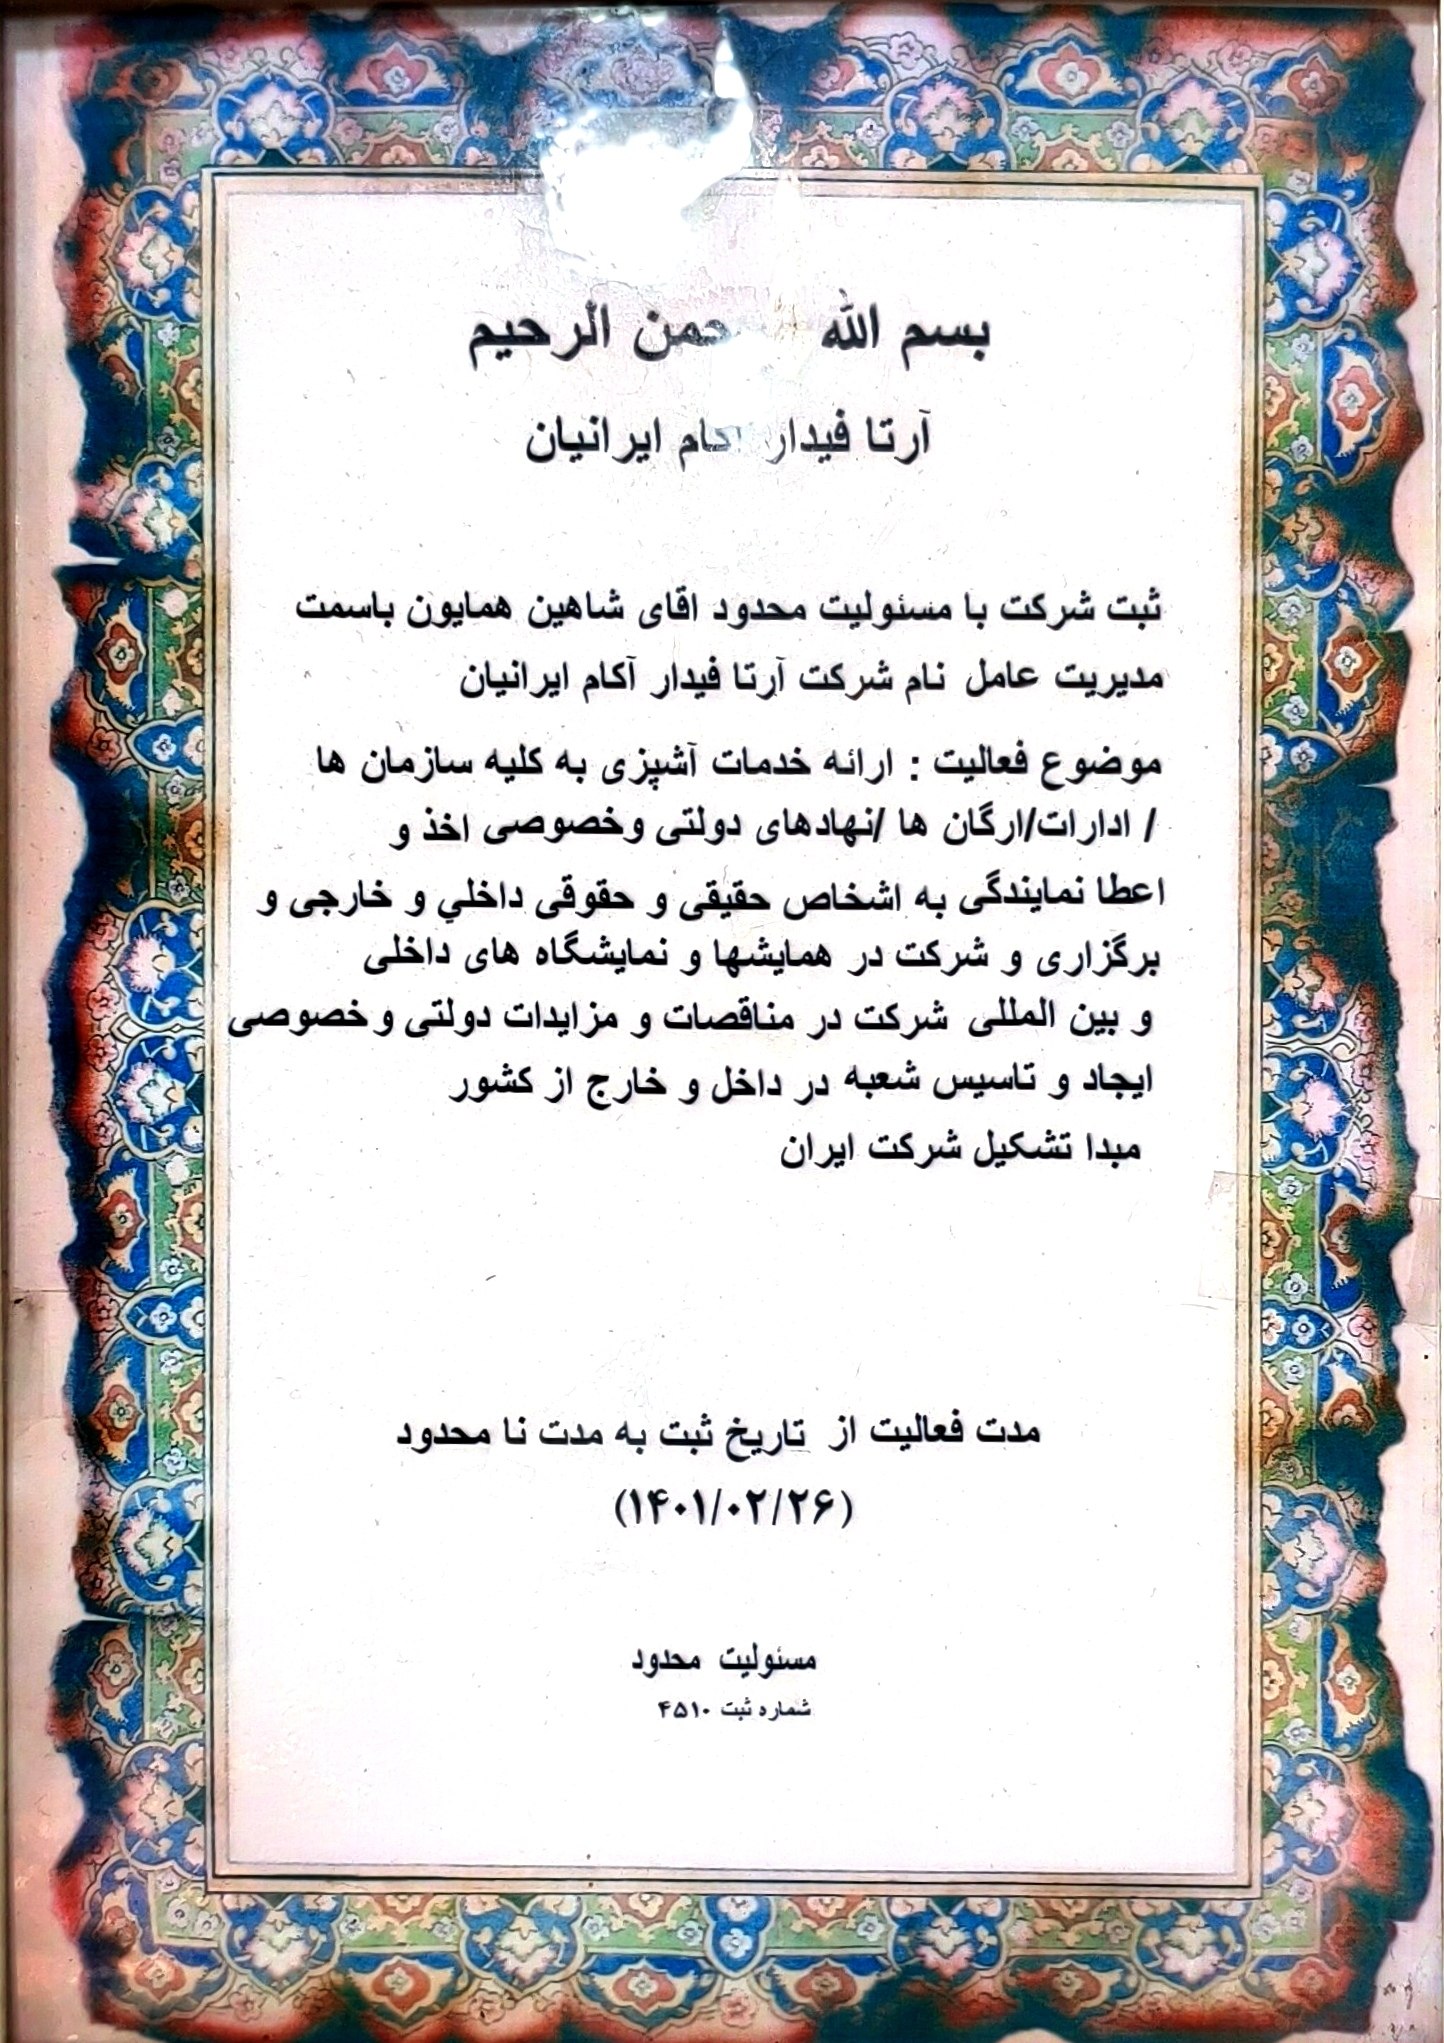 بسم الله حمن الرحیم
آرتا فیدار آکام ایرانیان
ثبت شرکت با مسئولیت محدود اقای شاهین همایون باسمت
مدیریت عامل نام شرکت آرتا فیدار آکام ایرانیان
موضوع فعالیت : ارائه خدمات آشپزی به کلیه سازمان ها
/ ادارات/ارگان ها /نهادهای دولتی وخصوصی اخذ و
اعطا نمایندگی به اشخاص حقیقی و حقوقی داخلي و خارجی و
برگزاری و شرکت در همایشها و نمایشگاه های داخلی
و بین المللی شرکت در مناقصات و مزایدات دولتی وخصوصی
ایجاد و تاسیس شعبه در داخل و خارج از کشور
مبدا تشکیل شرکت ایران
مدت فعالیت از تاریخ ثبت به مدت نا محدود
(۱۴۰۱/۰۲/۲۶)
مسئولیت محدود
شماره ثبت ۴۵۱۰